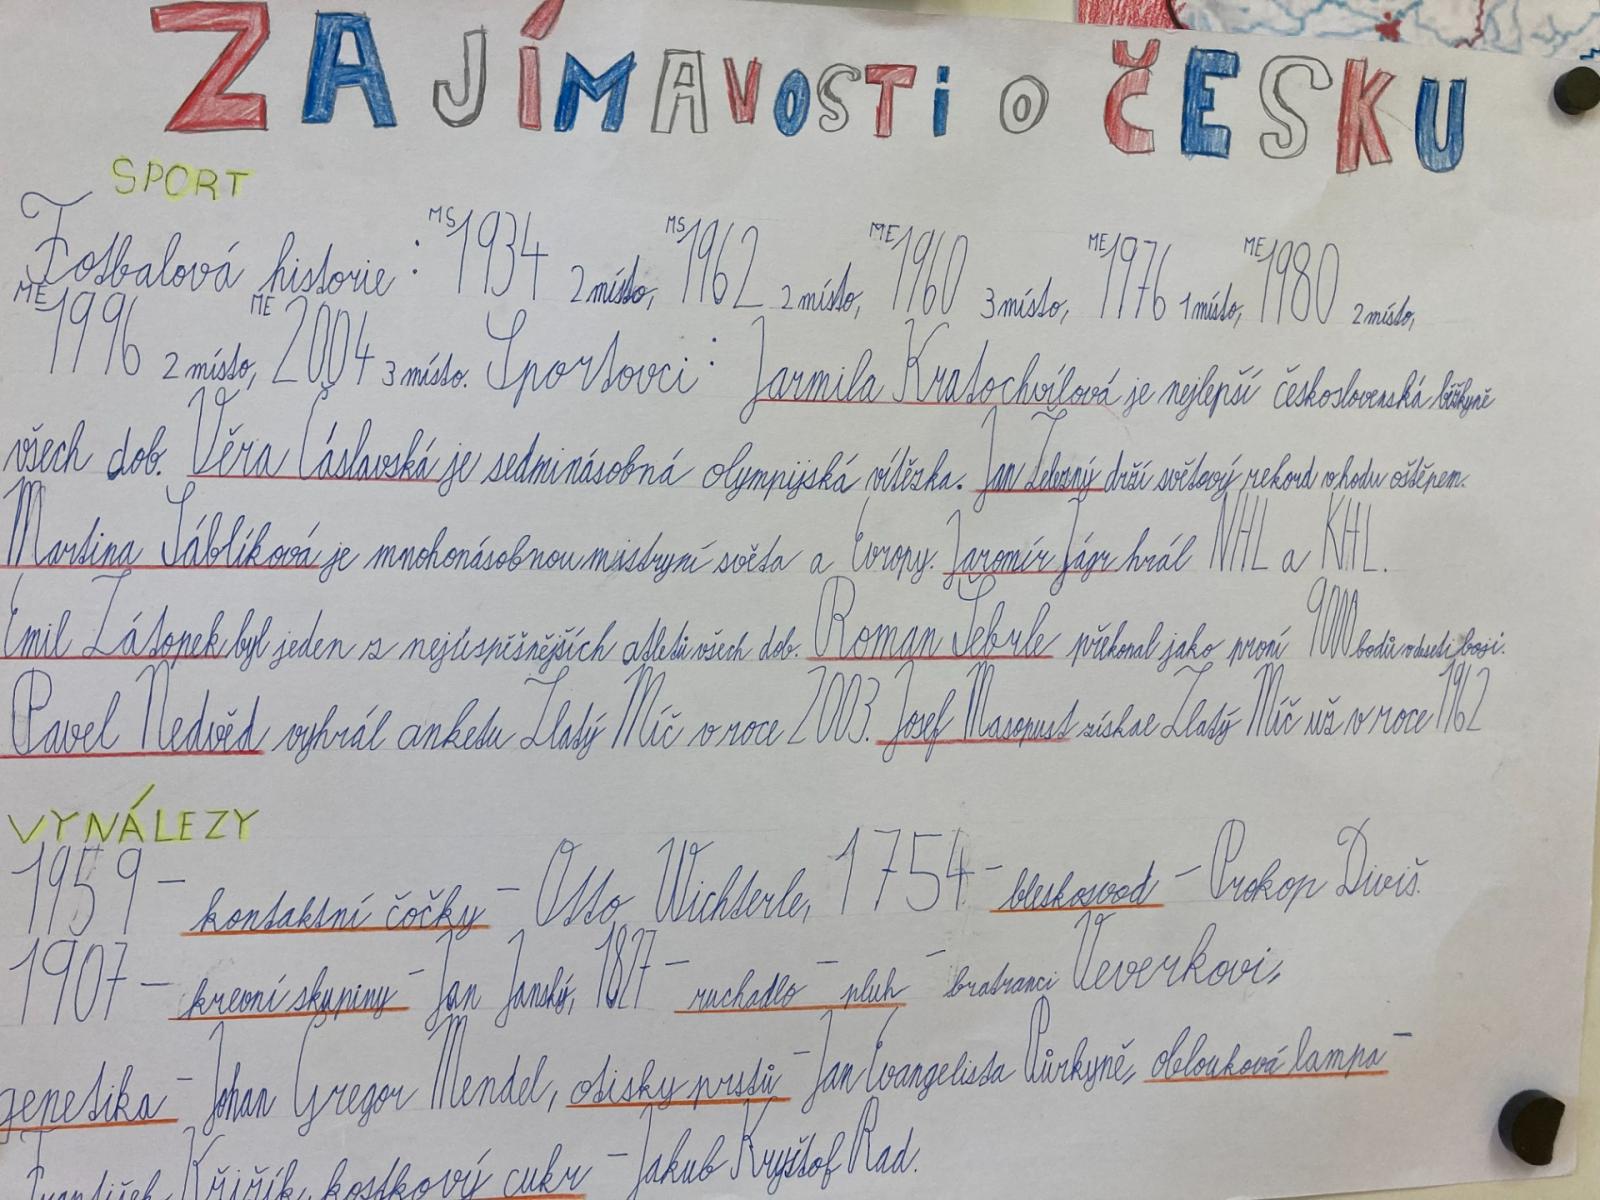 ZAJÍMAVOSTI O ČESKU
SPORT
Fotbalová historie: MS 1934 2 místo, MS 1962 2 místo, ME 1960 3 místo, ME 1976 1 místo, ME 1980 2 místo,
ME 1996 2 místo, ME 2004 3 místo. Sportovci: Jarmila Kratochvílová je nejlepší československá běžkyně
všech dob. Věra Čáslavská je sedminásobná olympijská vítězka. Jan Železný drží světový rekord v hodu oštěpem.
Martina Sáblíková je mnohonásobnou mistryní světa a Evropy. Jaromír Jágr hrál NHL a KHL.
Emil Zátopek byl jeden z nejúspěšnějších atletů všech dob. Roman Šebrle překonal jako první 9000 bodů v desetiboji.
Pavel Nedvěd vyhrál anketu Zlatý Míč v roce 2003. Josef Masopust získal Zlatý Míč už v roce 1962
VYNÁLEZY
1959 - kontaktní čočky - Otto Wichterle, 1754 - bleskosvod - Prokop Diviš.
1907 - krevní skupiny - Jan Janský, 1827 - ruchadlo - pluh - bratranci Veverkovi,
genetika - Johan Gregor Mendel, otisky prstů - Jan Evangelista Purkyně, oblouková lampa -
František Křižík, kostkový cukr - Jakub Kryštof Rad.